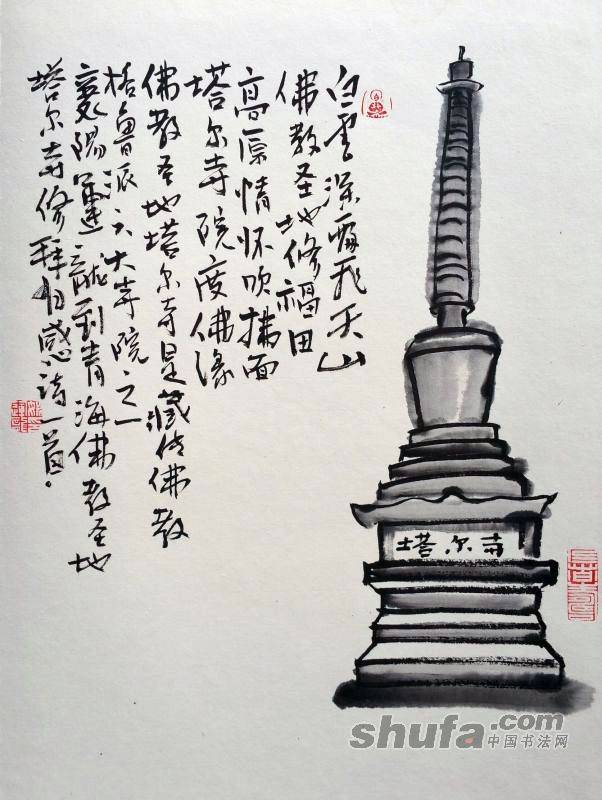 白雲深飛天山
佛教圣地修福田
高原情怀吹拂面
塔尔寺院度佛缘
佛教圣地塔尔寺是藏传佛教
格鲁派六大寺院之一
襄陽龍到青海佛教圣地
塔尔寺修拜有感诗一首.
塔尔寺
shufa.com
中国书法网